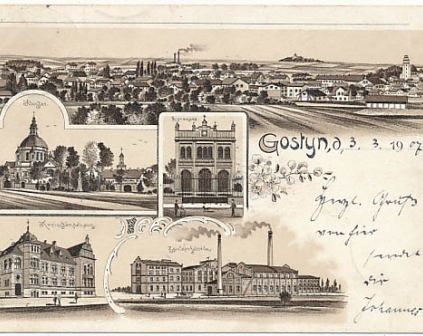 Kloster
Synagoge
Gostyn, d. 3. 3. 1907
Herzl. Gruß
von hier
sendet
dir
Johannes